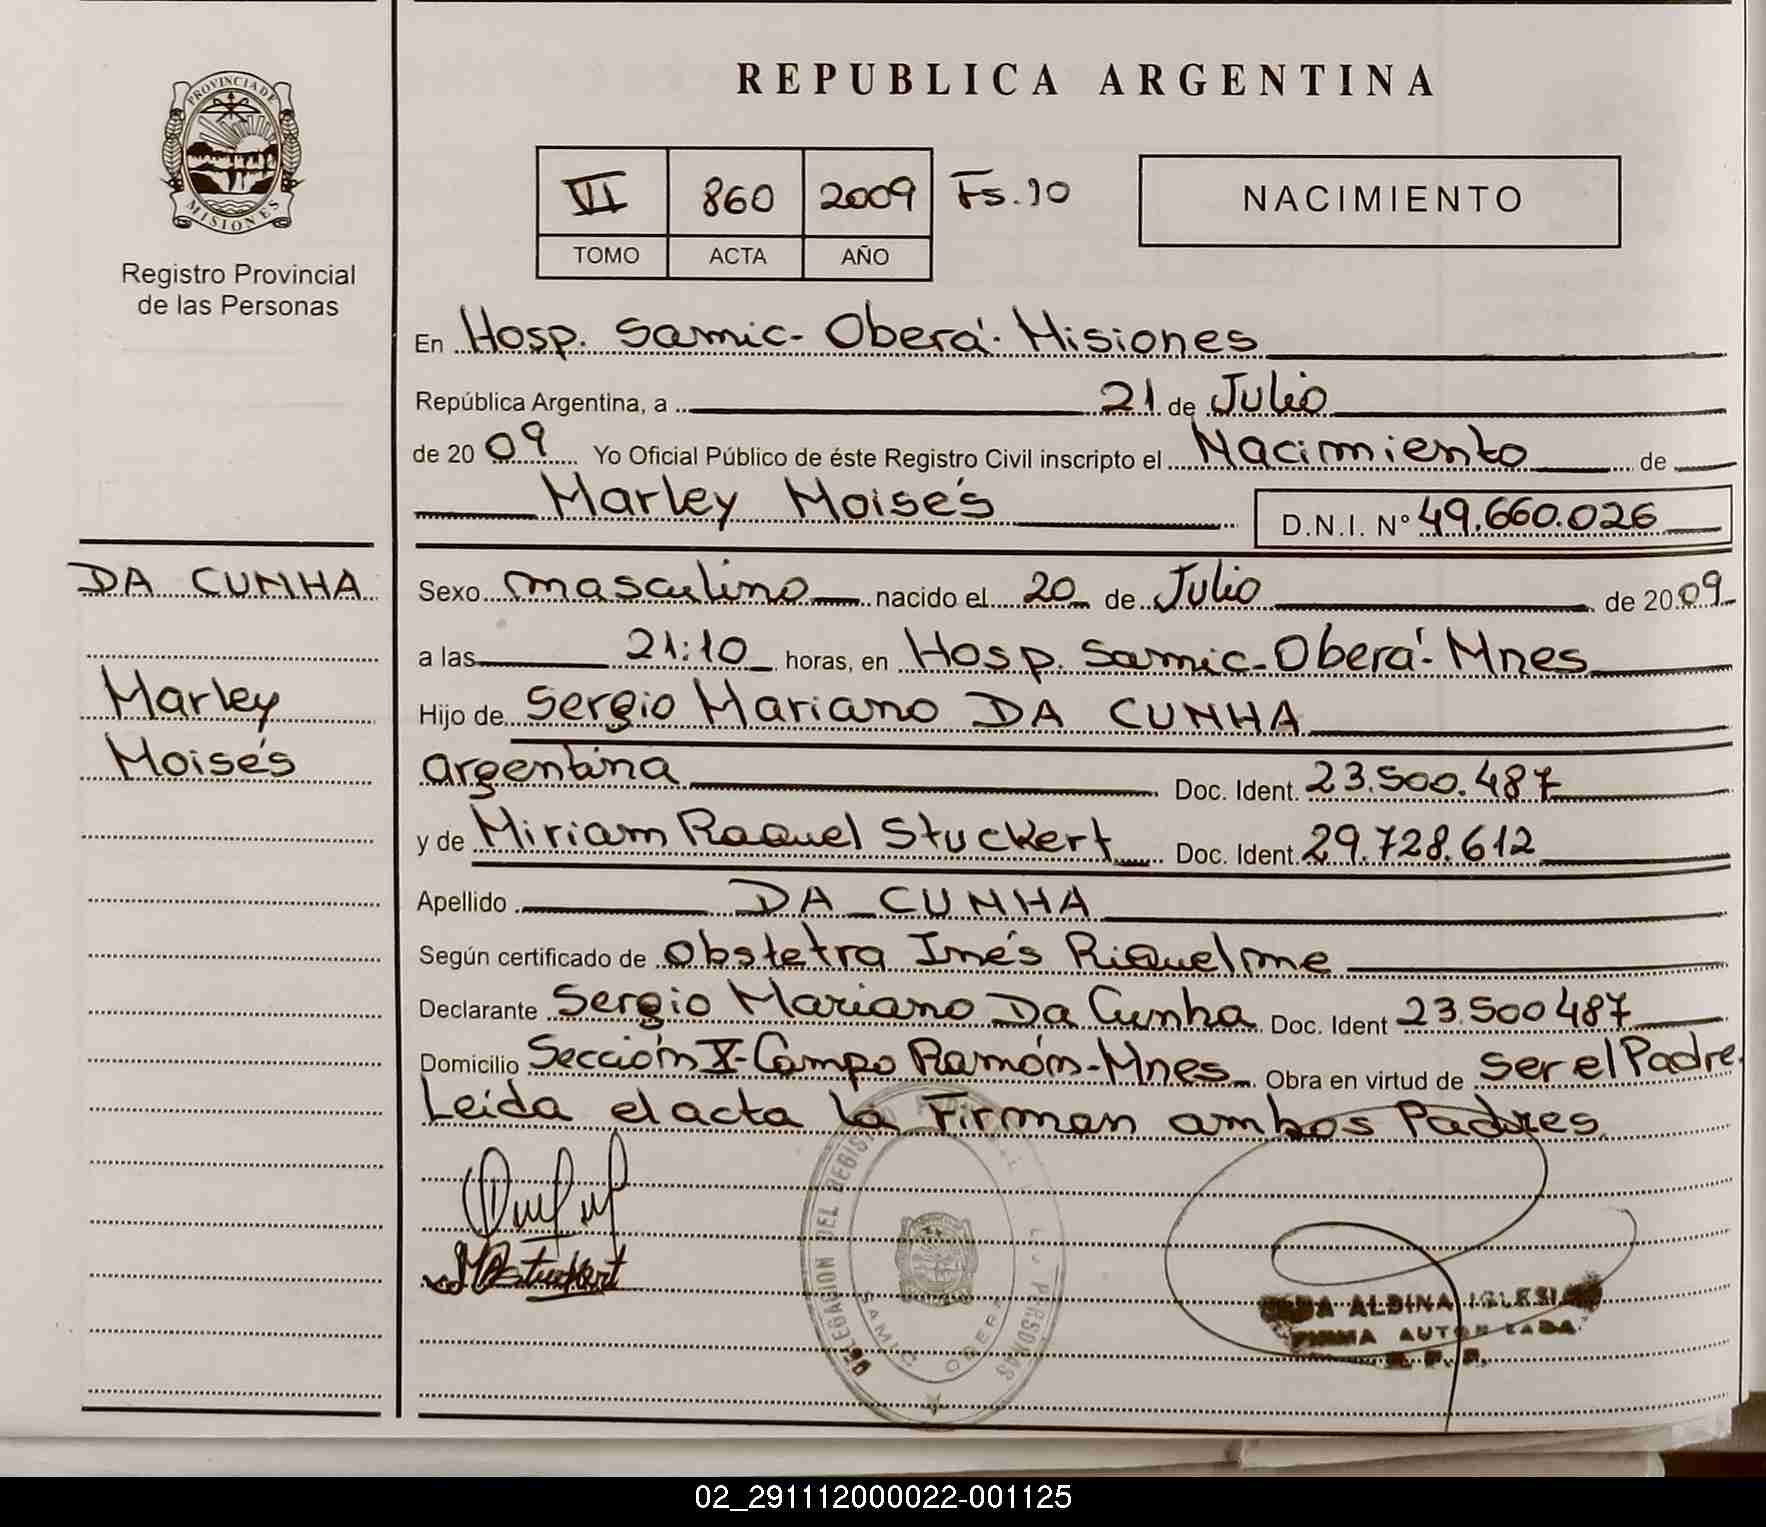 REPUBLICA ARGENTINA
PROVINCIA DE
MISIONES
Registro Provincial
de las Personas
VI 860 2009 Fs. 90
TOMO ACTA AÑO
NACIMIENTO
En Hosp. Samic - Oberá - Misiones
República Argentina, a 21 de Julio
de 20 09 Yo Oficial Público de éste Registro Civil inscripto el Nacimiento de
Marley Moisés D.N.I. Nº 49.660.026
DA CUNHA
Marley
Moisés
Sexo masculino nacido el 20 de Julio de 20 09
a las 21:10 horas, en Hosp. Samic - Oberá - Mnes
Hijo de Sergio Mariano DA CUNHA
argentina Doc. Ident. 23.500.487
y de Miriam Raquel Stuckert Doc. Ident. 29.728.612
Apellido DA CUNHA
Según certificado de Obstetra Inés Riquelme
Declarante Sergio Mariano Da Cunha Doc. Ident 23.500487
Domicilio Sección X - Campo Ramón - Mnes Obra en virtud de ser el Padre.
Leída el acta la Firman ambos Padres
MRStuckert
DELEGACION DEL REGISTRO PERSONAS
SAMIC OBERA
ALBINA IGLESIAS
FIRMA AUTORIZADA
02_291112000022-001125